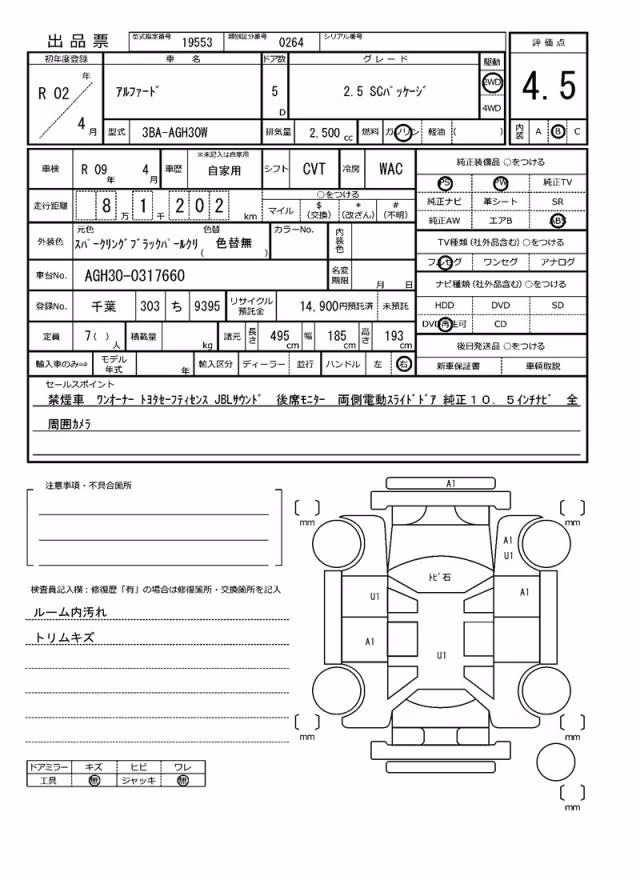 出品票 型式指定番号 19553 類別区分番号 0264 シリアル番号
初年度登録 車名 ドア数 グレード 駆動 評価点
R 02 年 4 月 アルファード 5 D 2.5 SGパッケージ 2WD 4WD 4.5
型式 3BA-AGH30W 排気量 2,500 cc 燃料 ガソリン 軽油 ( ) 内装 A B C
車検 R 09 年 4 月 車歴 ※未記入は自家用 自家用 シフト CVT 冷房 WAC
走行距離 8 万 1 千 2 0 2 km ○をつける マイル $ (交換) * (改ざん) # (不明)
外装色 元色 色替 スパークリングブラックパールクリ ( 色替無 ) カラーNo. 内装色
車台No. AGH30-0317660 名変期限 月 日
登録No. 千葉 303 ち 9395 リサイクル預託金 14,900円預託済 未預託
定員 7 ( ) 人 積載量 kg 諸元 長さ 495 cm 幅 185 cm 高さ 193 cm
輸入車のみ⇒ モデル年式 年 輸入区分 ディーラー 並行 ハンドル 左 右
純正装備品 ○をつける
PS PW 純正TV
純正ナビ 革シート SR
純正AW エアB ABS
TV種類 (社外品含む) ○をつける
フルセグ ワンセグ アナログ
ナビ種類 (社外品含む) ○をつける
HDD DVD SD
DVD再生可 CD
後日発送品 ○をつける
新車保証書 車輌取説
セールスポイント
禁煙車 ワンオーナー トヨタセーフティセンス JBLサウンド 後席モニター 両側電動スライドドア 純正10.5インチナビ 全
周囲カメラ
注意事項・不具合箇所
検査員記入欄:修復歴「有」の場合は修復箇所・交換箇所を記入
ルーム内汚れ
トリムキズ
ドアミラー キズ ヒビ ワレ
工具 無 ジャッキ 無
A1
mm mm
A1
U1
トビ石
U1 A1
A1 U1
mm mm
mm